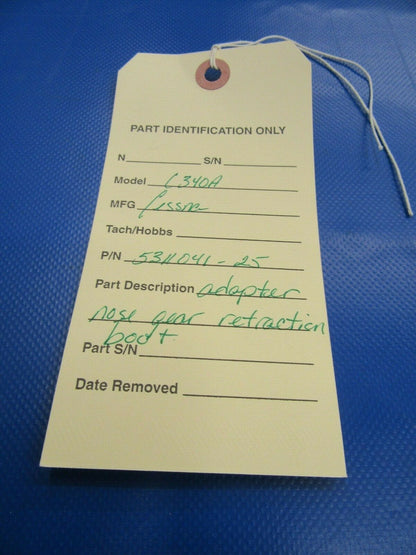 PART IDENTIFICATION ONLY
N__________ S/N__________
Model C340A
MFG Cessna
Tach/Hobbs
P/N 5311041-25
Part Description adapter
nose gear retraction
boot
Part S/N
Date Removed